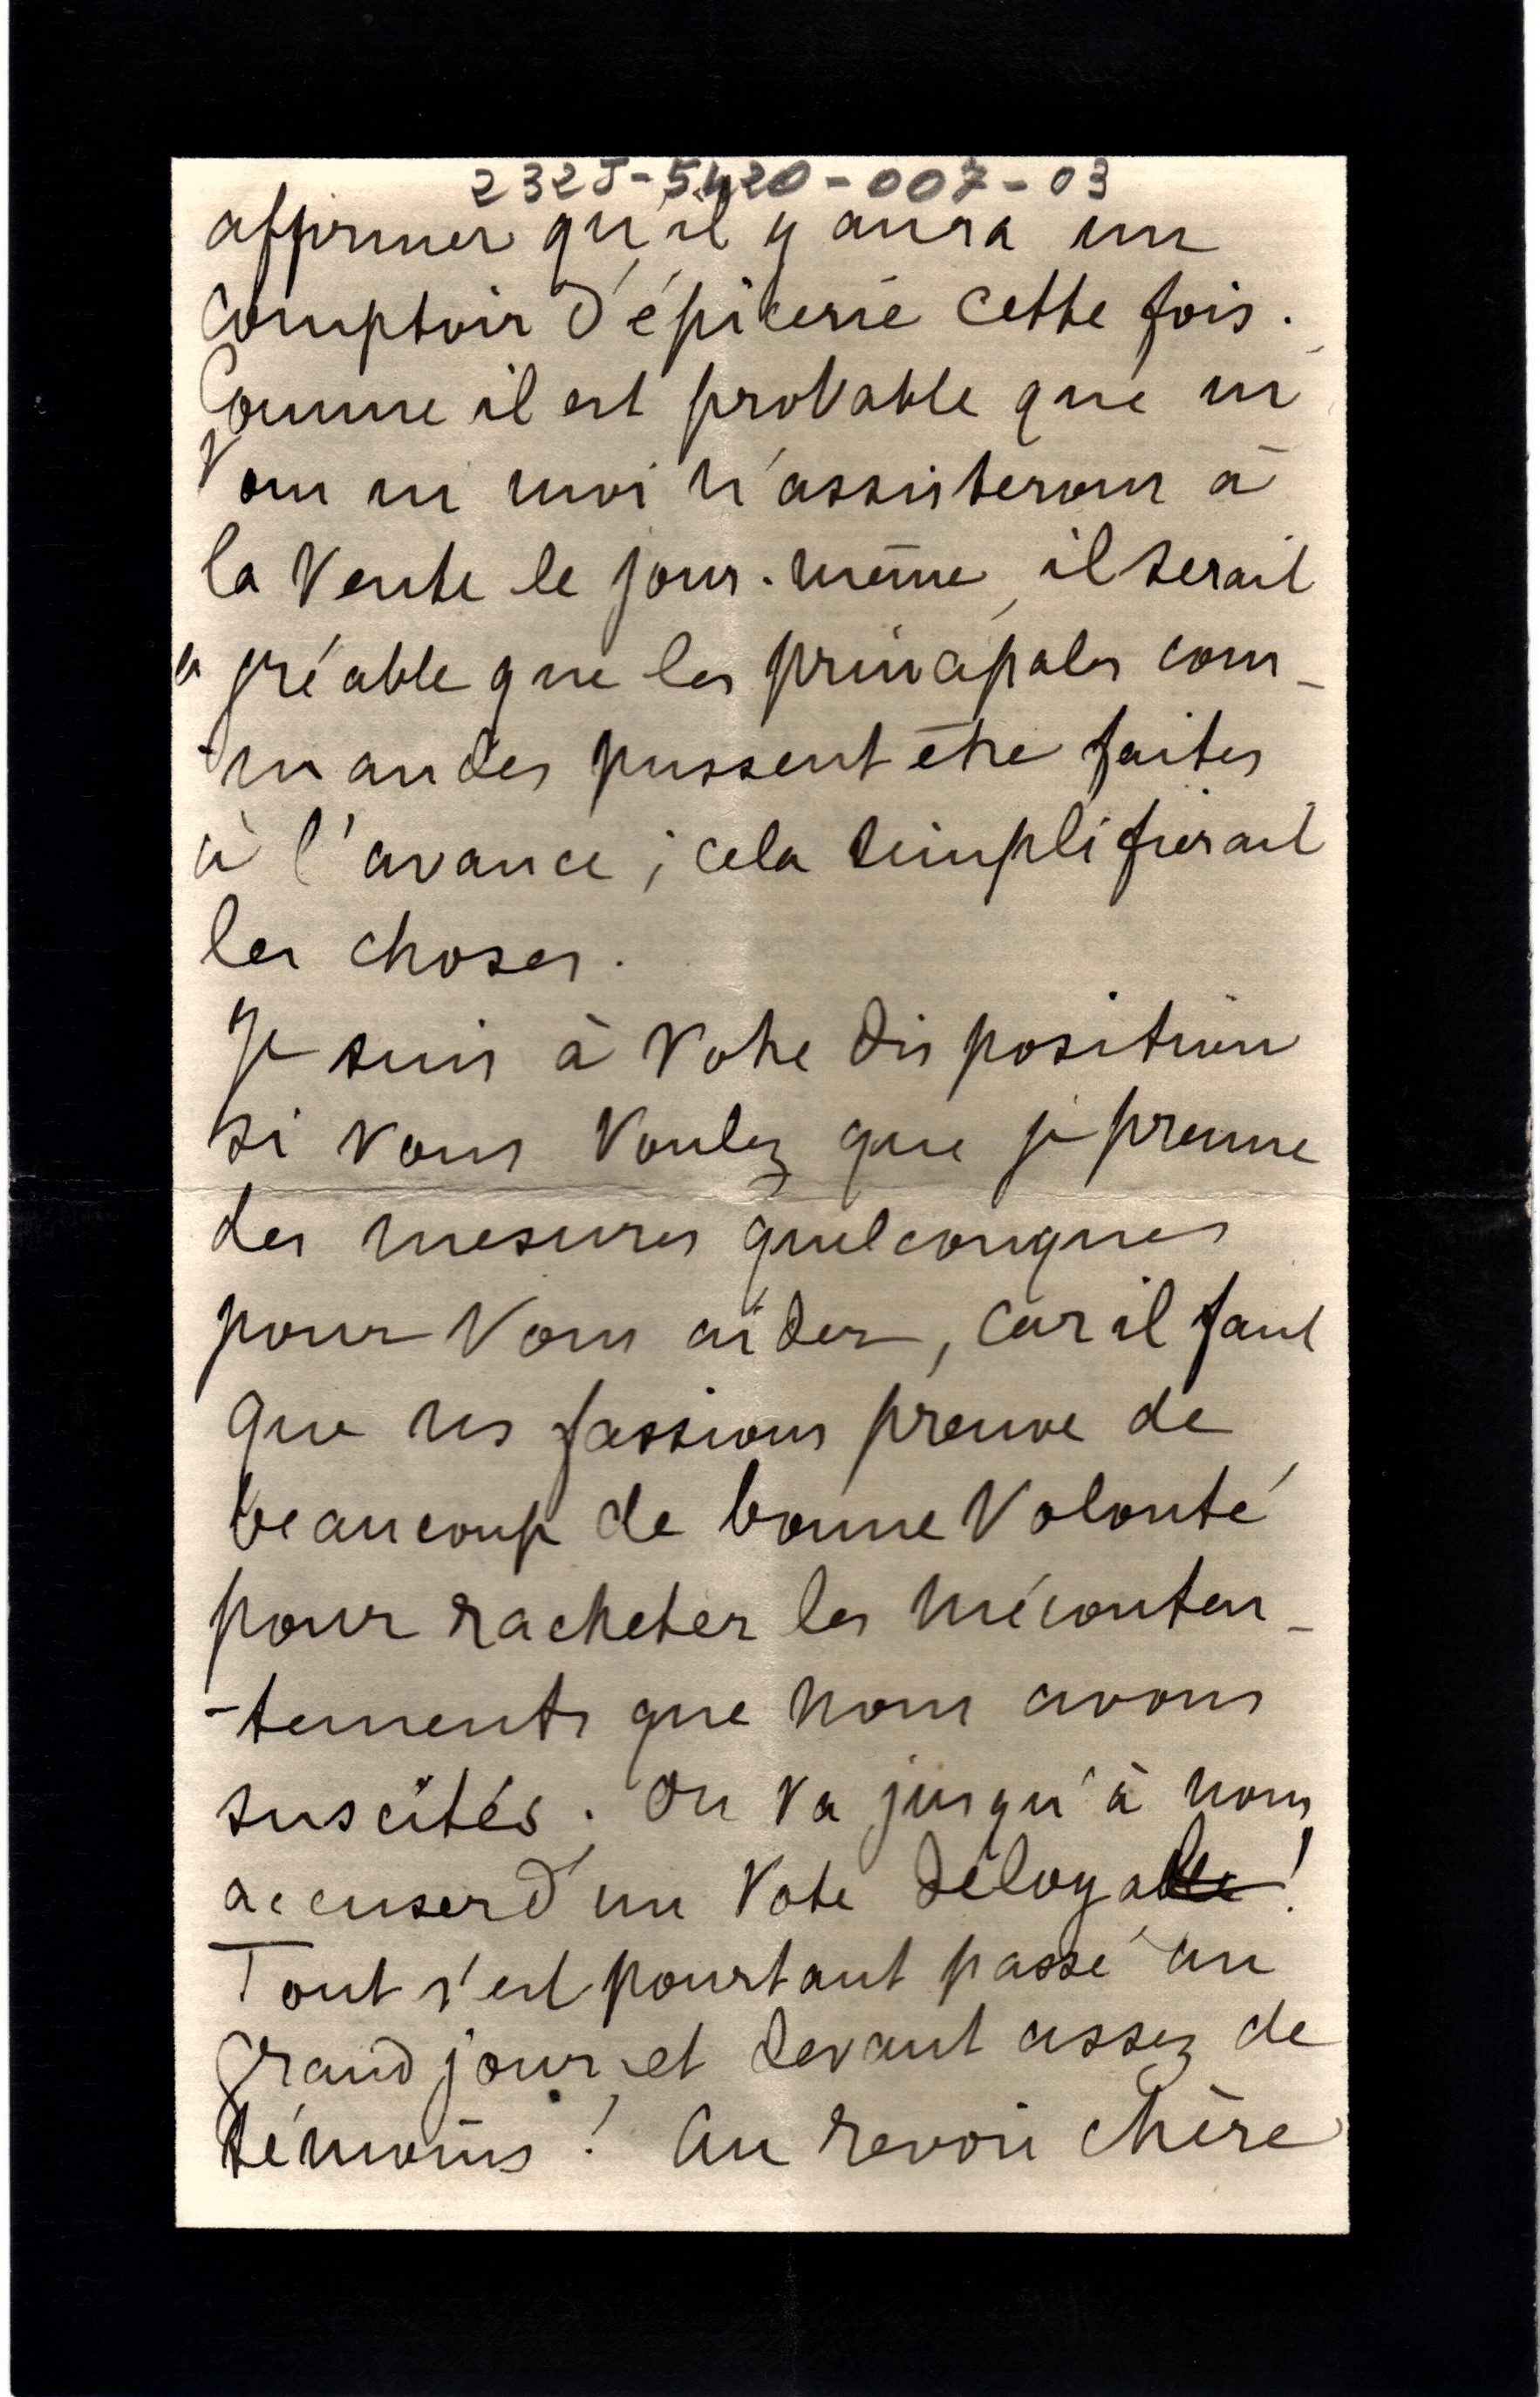 232J-5420-007-03
affirmer qu'il y aura un
comptoir d'épicerie cette fois.
Comme il est probable que ni
Vous ni moi n'assisterons à
la Vente le jour-même, il serait
agréable que les principales com-
-mandes pussent être faites
à l'avance ; cela simplifierait
les choses.
Je suis à Votre disposition
si vous Voulez que je prenne
des mesures quelconques
pour Vous aider, car il faut
que ns fassions preuve de
beaucoup de bonne Volonté
pour racheter les méconten-
-tements que nous avons
suscités. On va jusqu'à nous
accuser d'un Vote déloyal !
Tout s'est pourtant passé au
grand jour, et devant assez de
témoins ! Au revoir chère